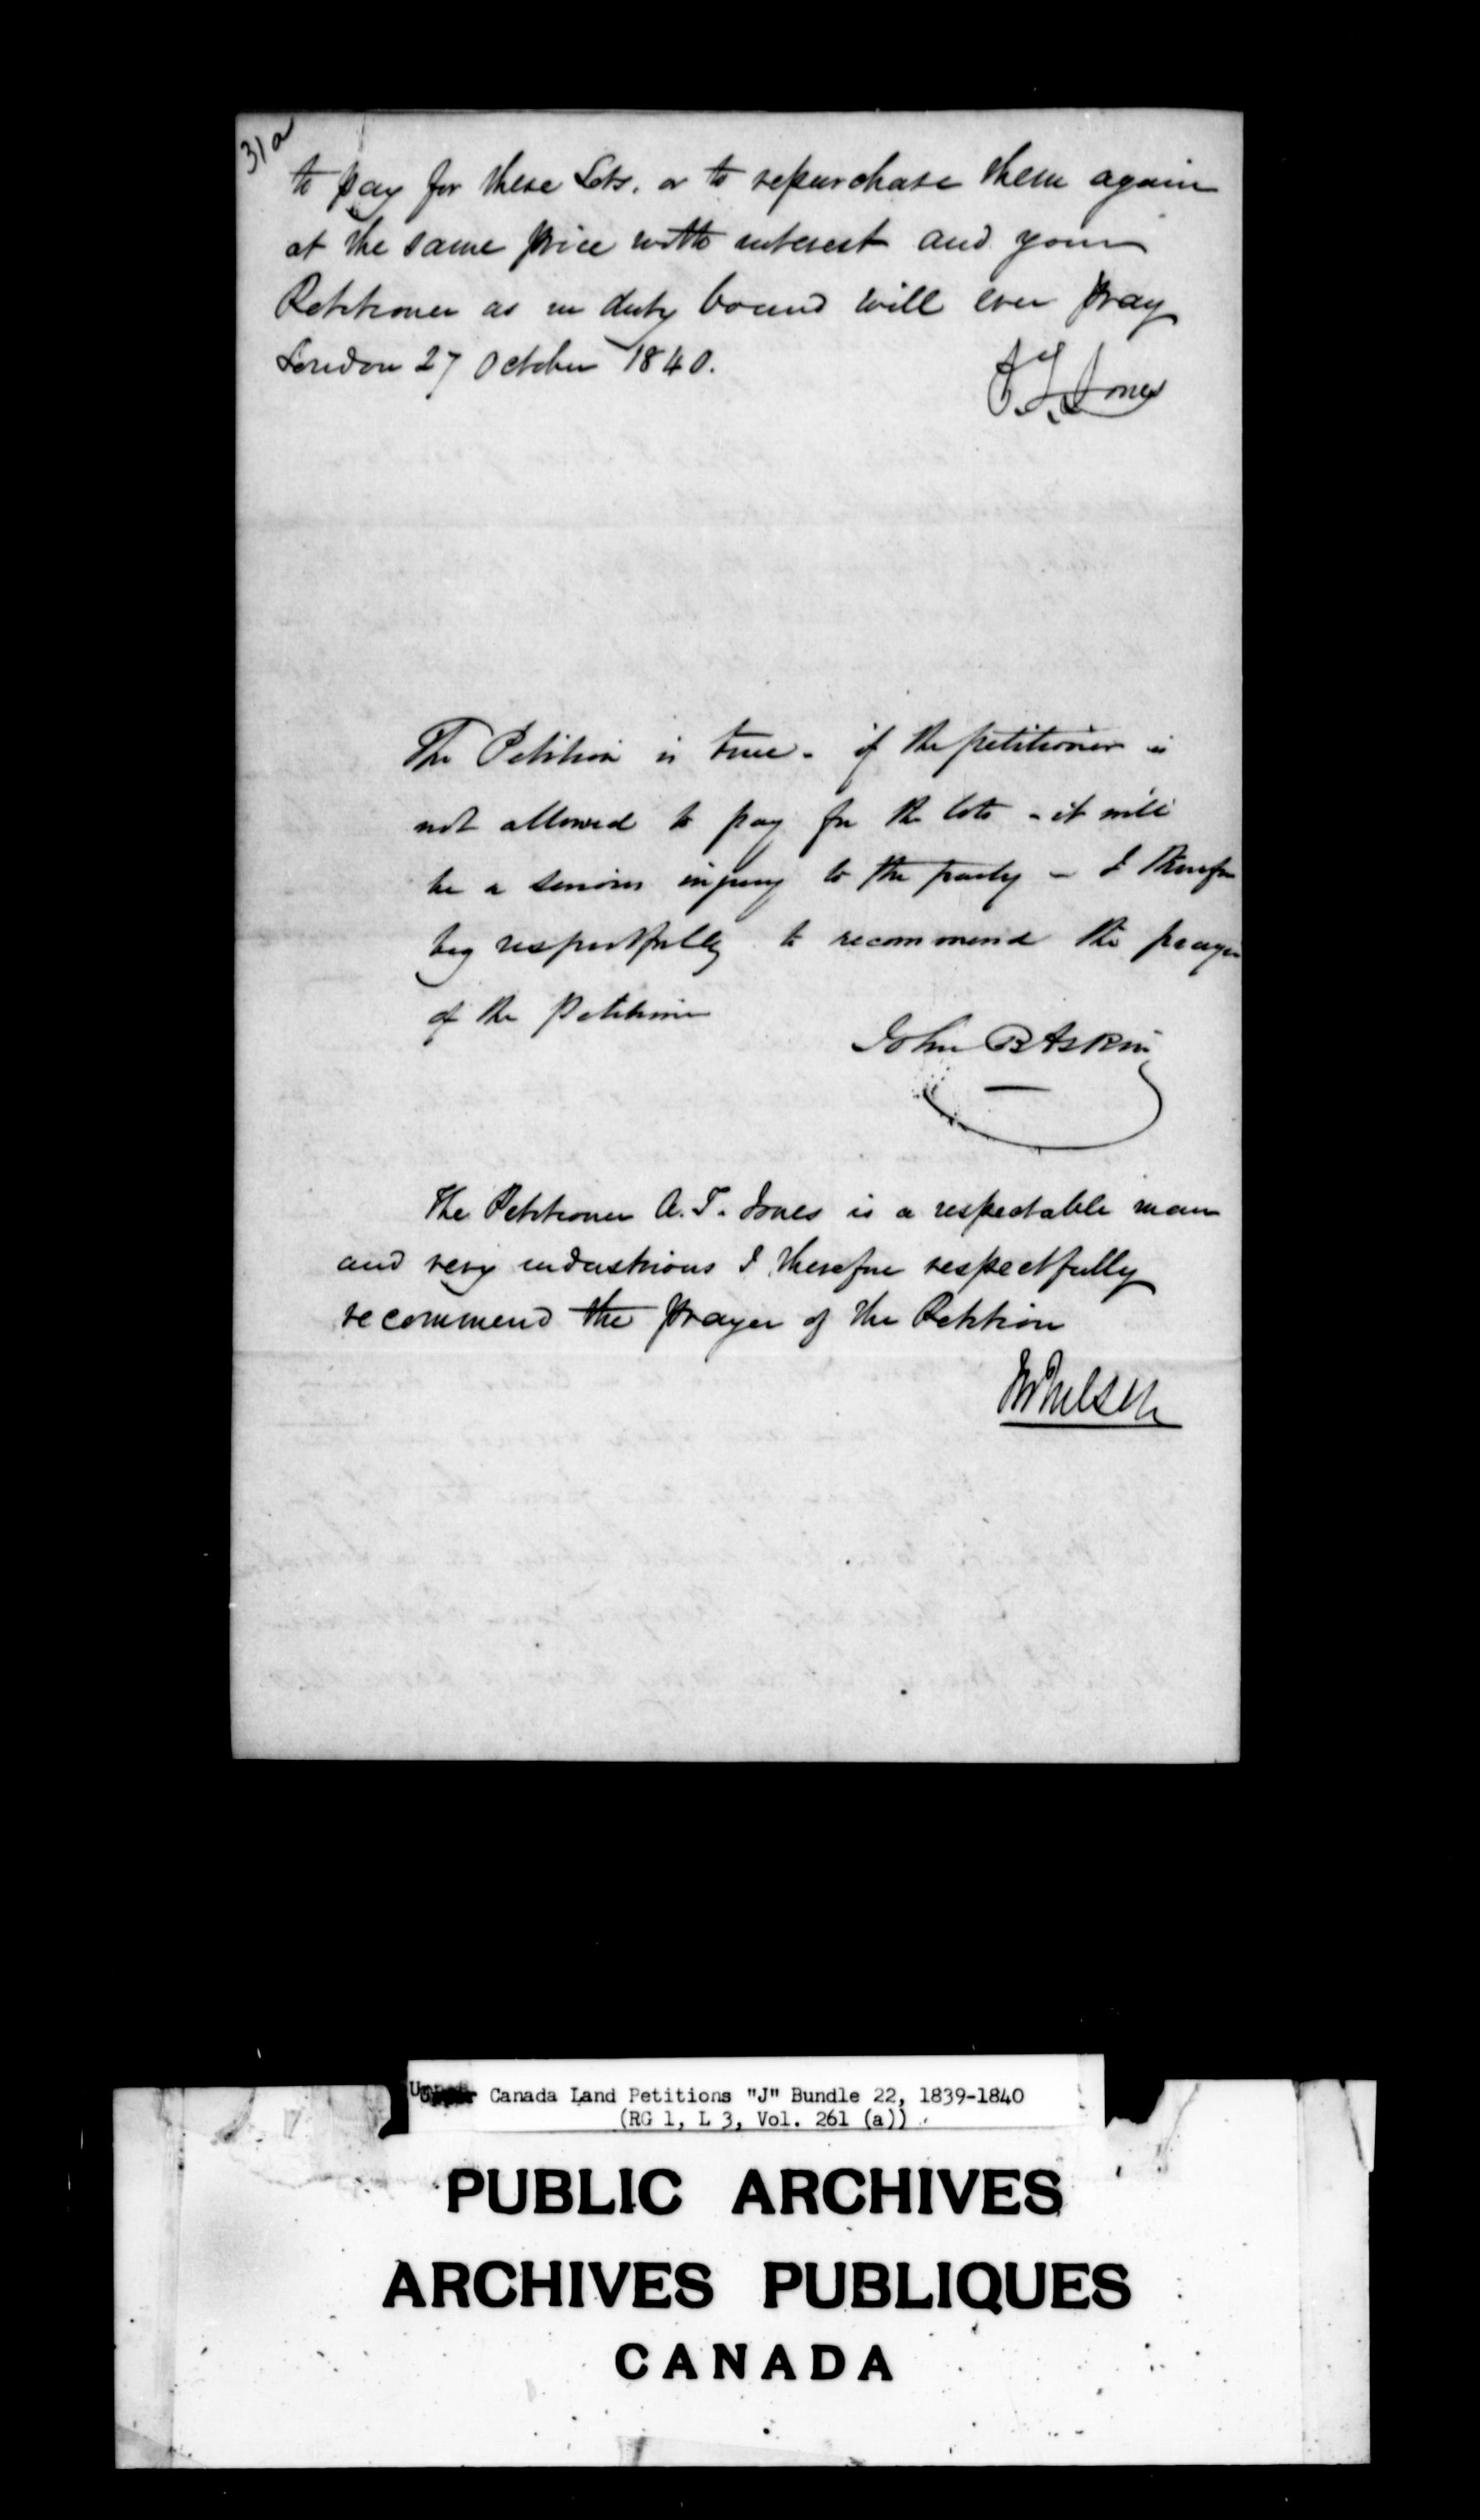 31a
to pay for these Lots, or to repurchase them again
at the same price with interest and your
Petitioner as in duty bound will ever pray
London 27 October 1840.
A.T. Jones
The Petition is true - if the petitioner is
not allowed to pay for the lots - it will
be a serious injury to the party - I therefore
beg respectfully to recommend the prayer
of the Petitioner
John B Askin
The Petitioner A. T. Jones is a respectable man
and very industrious I therefore respectfully
recommend the prayer of the Petition
Upper Canada Land Petitions "J" Bundle 22, 1839-1840
(RG 1, L 3, Vol. 261 (a))
PUBLIC ARCHIVES
ARCHIVES PUBLIQUES
CANADA